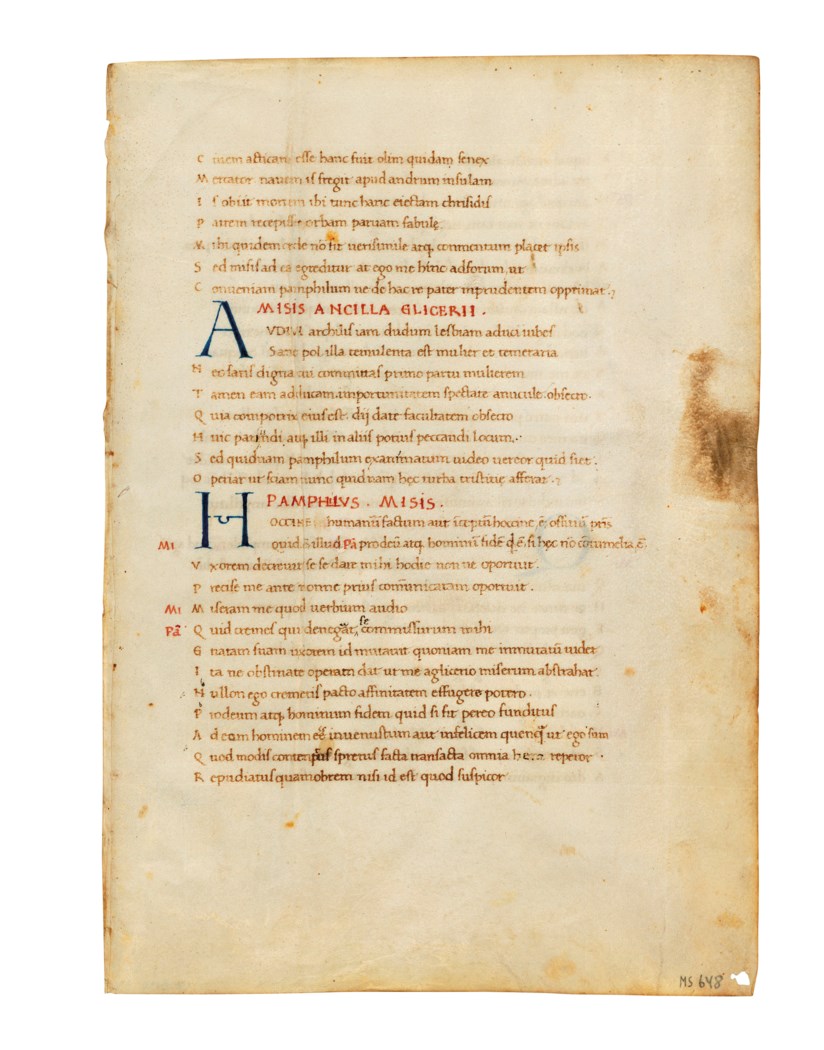 C iuem acticam esse hanc fuit olim quidam senex
M ercator nauem is fregit apud andrum insulam
I s obiit mortem ibi tunc hanc eiectam chrisidis
P atrem recepisse orbam paruam fabulę
M ihi quidem no fit uerisimile atq. commentum placet ipsis
S ed misis ab ea egreditur at ego me hinc ad forum ut
C onueniam pamphilum ne de hac re pater inprudentem opprimat.
MISIS ANCILLA GLICERII .
A VDIVI archilis iam dudum lesbiam aduci iubes
Sane pol illa temulenta est mulier et temeraria
N ec satis digna cui committas primo partu mulierem
T amen eam adducam. importunitatem spectate anicule. obsecro.
Q uia compotrix eius est. dij date facultatem obsecro
H uic pariundi atq. illi in aliis potius peccandi locum.
S ed quidnam pamphilum exanimatum uideo uereor quid siet.
O periar ut sciam nunc quidnam hęc turba tristitię afferat.
PAMPHILVS . MISIS .
H OCCINE humanū factum aut īceptū hoccine ē. officiū pris
Mi quid ē illud Pā pro deū atq. hominū fidē q̄ ē. si hęc nō cōtumelia ē.
V xorem decreuit se se dare mihi hodie non ne oportuit.
P recise me ante nonne prius com̄unicatam oportuit.
Mi M iseram me quod uerbum audio
Pā Q uid cremes qui denegat se commissurum mihi
G natam suam uxorem id mutauit quoniam me inmutatū uidet
I ta ne obstinate operam dat ut me a glicerio miserum abstrahat.
N ullon ego cremetis pacto affinitatem effugere potero.
P rodeum atq. hominum fidem quid si fit pereo funditus
A deom hominem eē inuenustum aut infelicem quenq̄ ut ego sum
Q uod modis spretus facta transacta omnia hem repetor
R epudiatus quamobrem nisi id est quod suspicor
MS 648